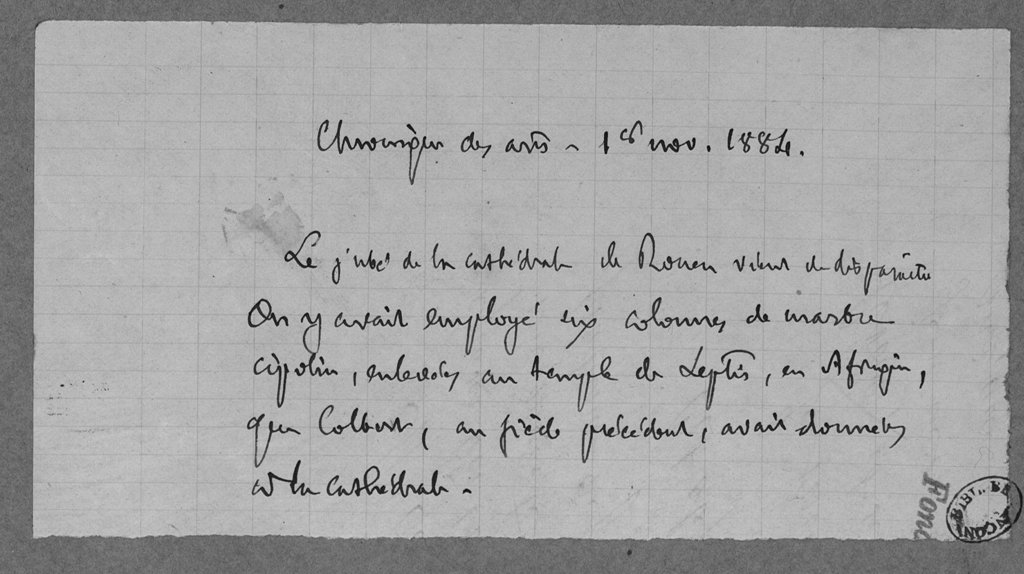 Chronique des arts - 1er nov. 1884.
Le jubé de la cathédrale de Rouen vient de disparaître
On y avait employé six colonnes de marbre
cipolin, enlevées au temple de Leptis, en Afrique,
que Colbert, au siècle précédent, avait données
à la cathédrale.
Fon
BIBL. DE